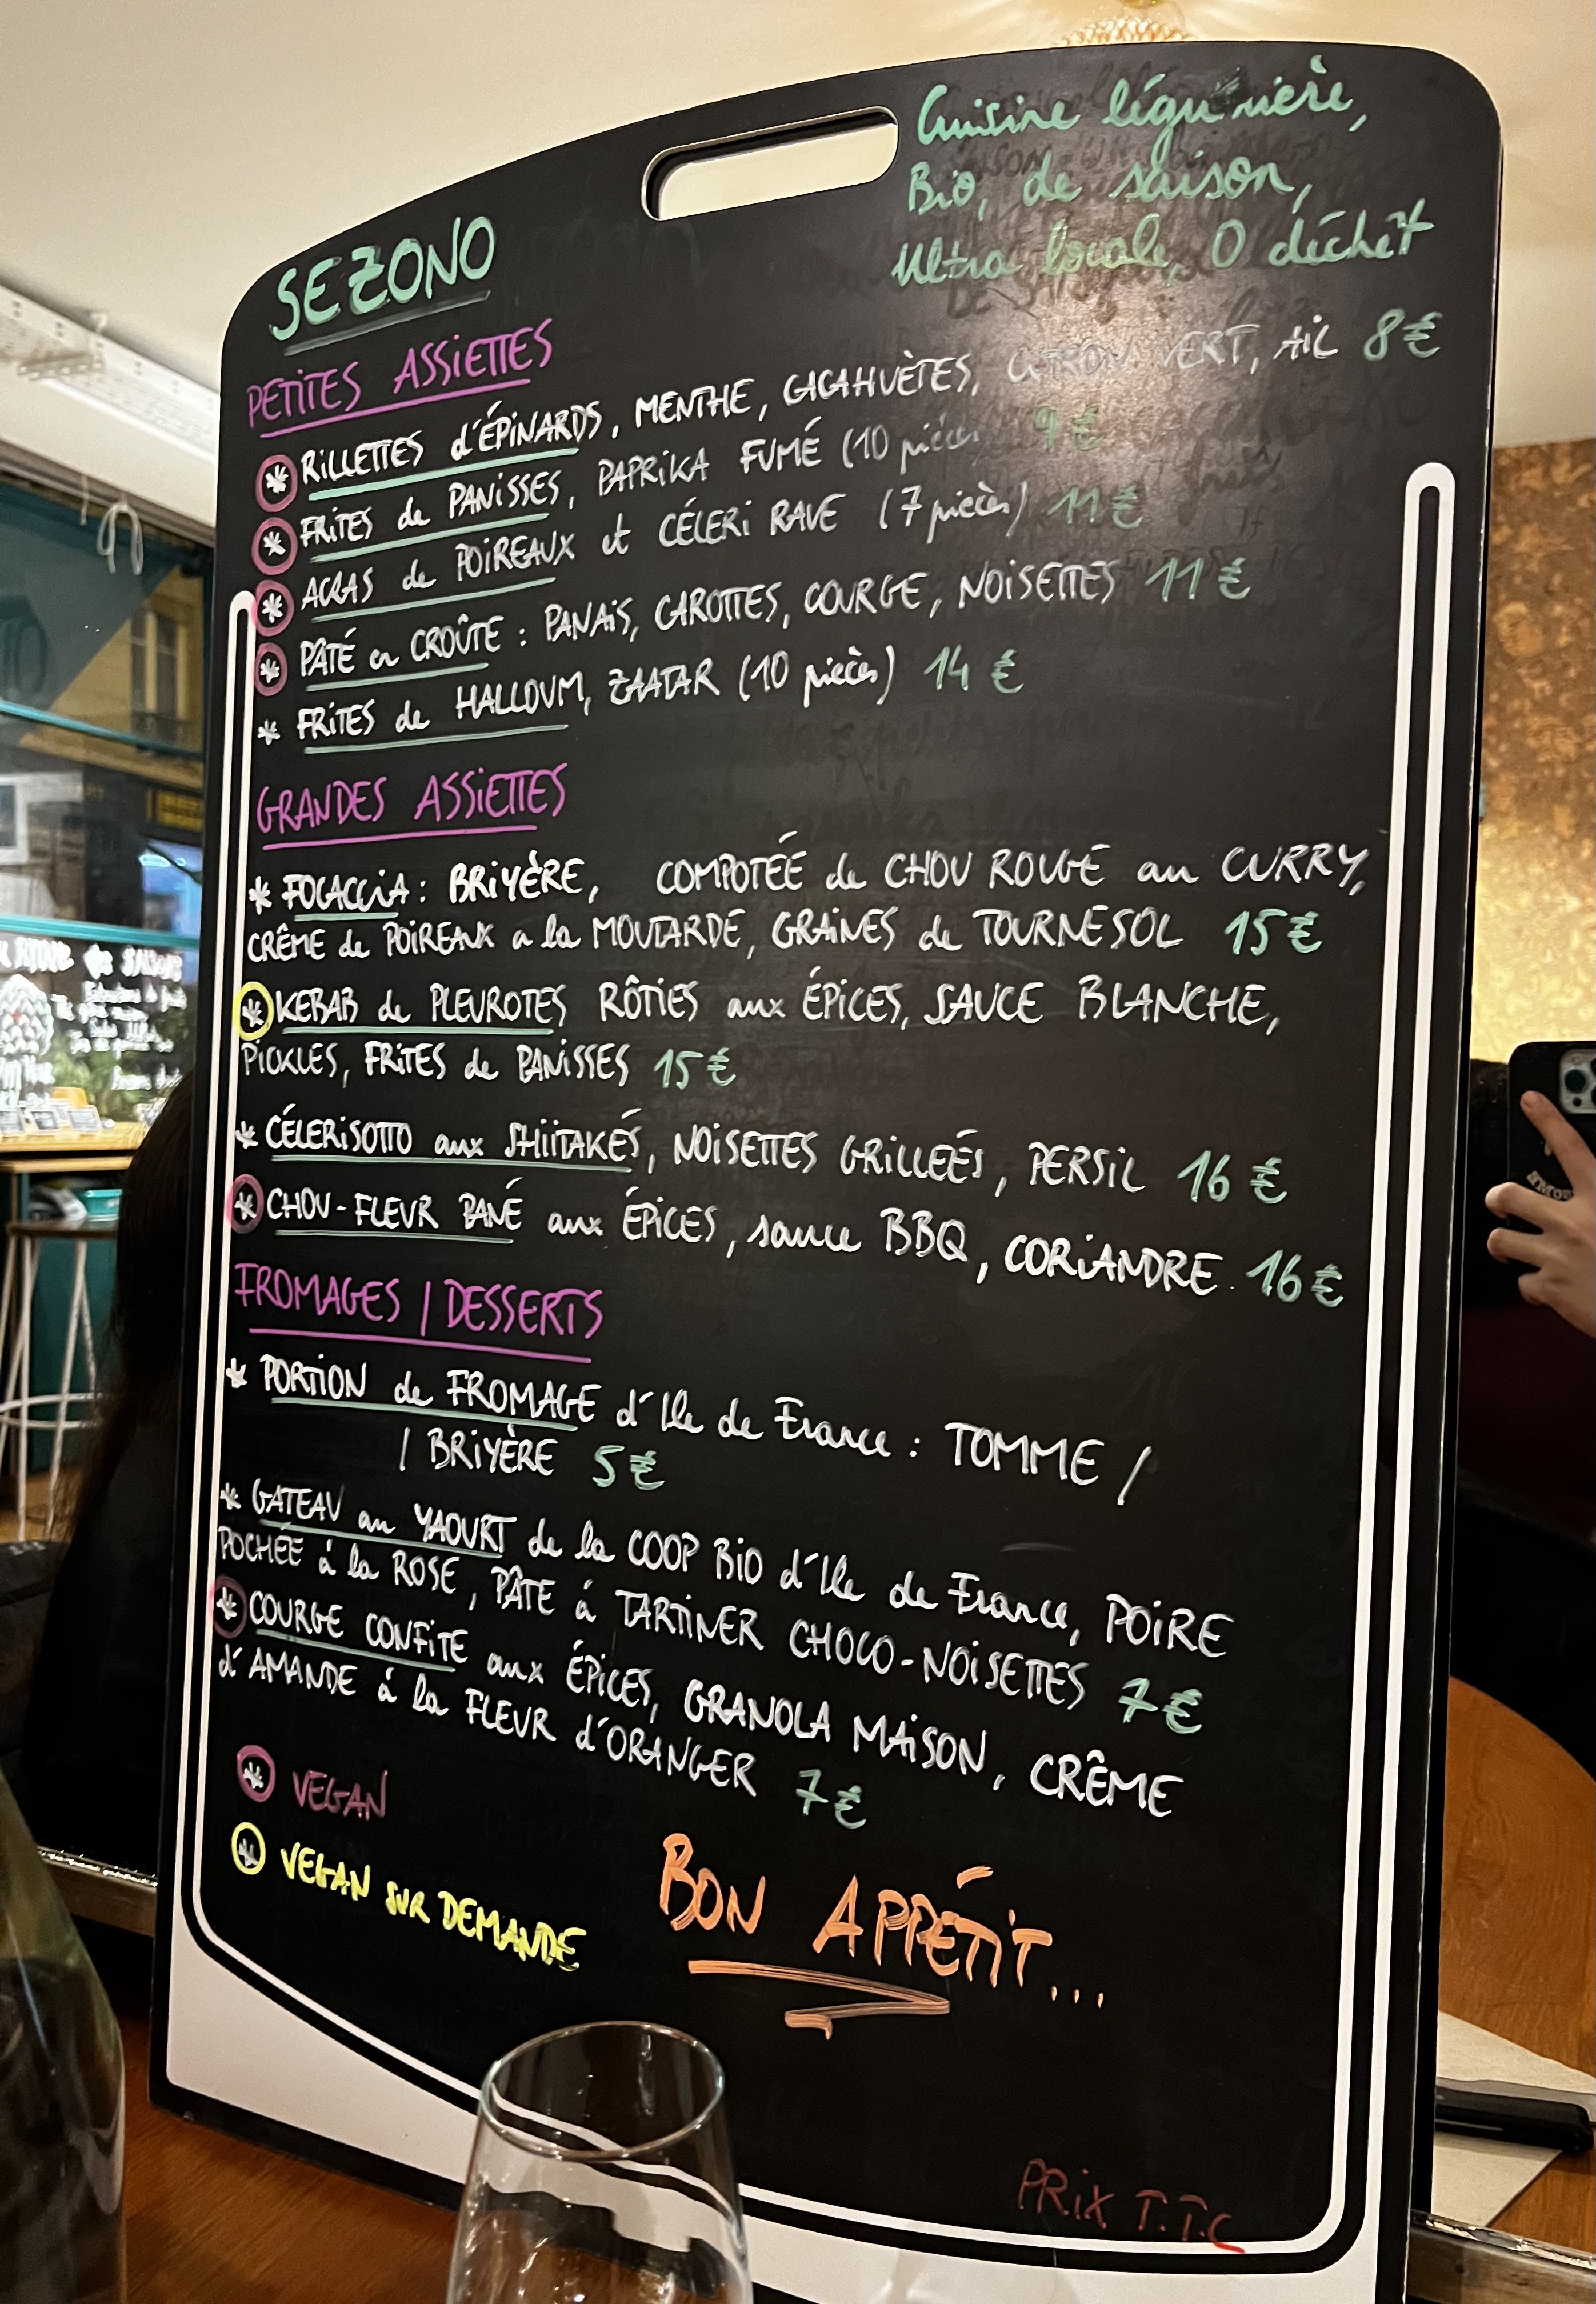 SEZONO
Cuisine légumière,
Bio, de saison,
Ultra locale, 0 déchet
PETITES ASSIETTES
* RILLETTES d'ÉPINARDS, MENTHE, CACAHUÈTES, CITRON VERT, AIL 8€
* FRITES de PANISSES, PAPRIKA FUMÉ (10 pièces) 9€
* ACRAS de POIREAUX et CÉLERI RAVE (7 pièces) 11€
* PÂTÉ en CROÛTE : PANAIS, CAROTTES, COURGE, NOISETTES 11€
* FRITES de HALLOUM, ZAATAR (10 pièces) 14€
GRANDES ASSIETTES
* FOCACCIA : BRIYÈRE, COMPOTÉE de CHOU ROUGE au CURRY,
CRÊME de POIREAUX a la MOUTARDE, GRAINES de TOURNESOL 15€
* KEBAB de PLEUROTES RÔTIES aux ÉPICES, SAUCE BLANCHE,
PICKLES, FRITES de PANISSES 15€
* CÉLERISOTTO aux SHIITAKÉS, NOISETTES GRILLEÉS, PERSIL 16€
* CHOU-FLEUR PANÉ aux ÉPICES, sauce BBQ, CORIANDRE. 16€
FROMAGES / DESSERTS
* PORTION de FROMAGE d'Ile de France : TOMME /
/ BRIYÈRE 5€
* GATEAU au YAOURT de la COOP BIO d'Ile de France, POIRE
POCHÉE à la ROSE, PÂTE à TARTINER CHOCO-NOISETTES 7€
* COURGE CONFITE aux ÉPICES, GRANOLA MAISON, CRÊME
d'AMANDE à la FLEUR d'ORANGER 7€
* VEGAN
* VEGAN SUR DEMANDE
BON APPÉTIT...
PRIX T.T.C